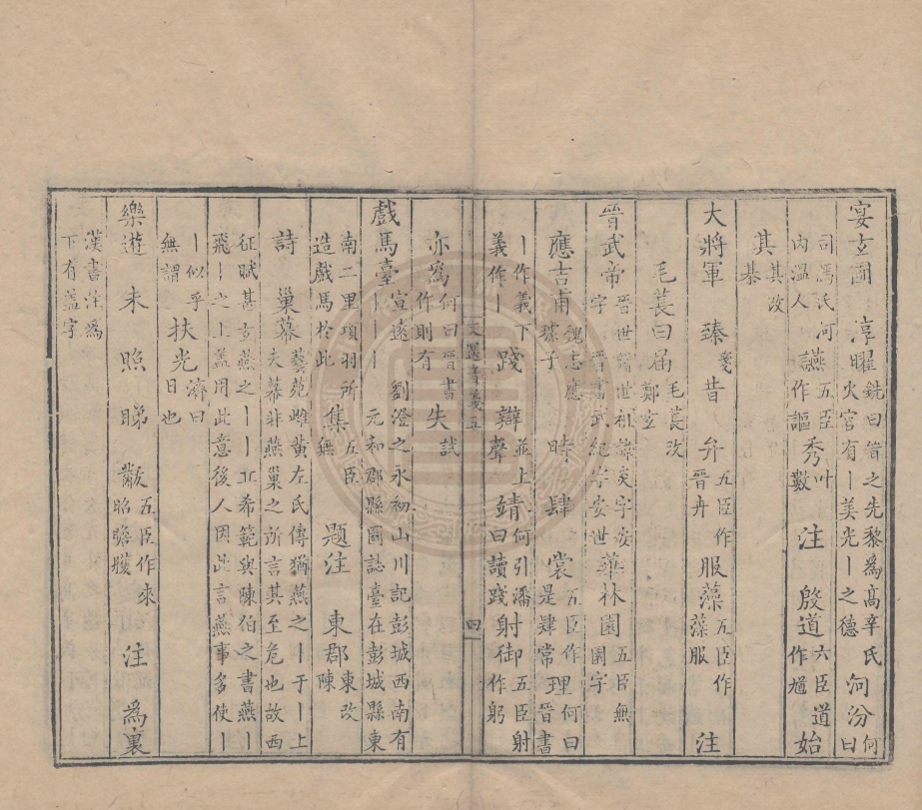 宴玄圃 淳曜銑曰晉之先黎爲高辛氏火官有丨美光丨之德 河汾何曰
司馬氏河內溫人 讌五臣作謳 秀叶數 注 殷道六臣道作遒 始
其其改基
大將軍 臻戔 昔 弁五臣作晉卉 服藻五臣作藻服 注
毛萇曰屆毛萇改鄭玄
晉武帝晉世譜世祖諱炎字安字晉書武紀字安世 華林園五臣無園字
應吉甫魏志應璩子 時 肆 裳五臣作是肆常 理何曰晉書
丨作義下義作丨 踐 辯聲並上 靖何引潘曰讀踐 射御五臣射作躬
亦爲何曰晉書作則有 失試
文選音義五 四
戲馬臺宣遠丨丨丨 劉澄之永初山川記彭城西南有 元和郡縣圖誌臺在彭城縣東
南二里項羽所造戲馬於此 集五臣無 題注 東郡東改陳
詩 巢幕藝苑雌黃左氏傳猶燕之丨于丨上夫幕非燕巢之所言其至危也故西
征賦甚玄燕之丨丨丘希範與陳伯之書燕丨飛丨之上蓋用此意後人因此言燕事多使丨
丨似乎無謂 扶光濟曰日也
樂遊 未 照 睇 歡五臣作來 昭瞻 注 爲裏
漢書注爲下有蓋字